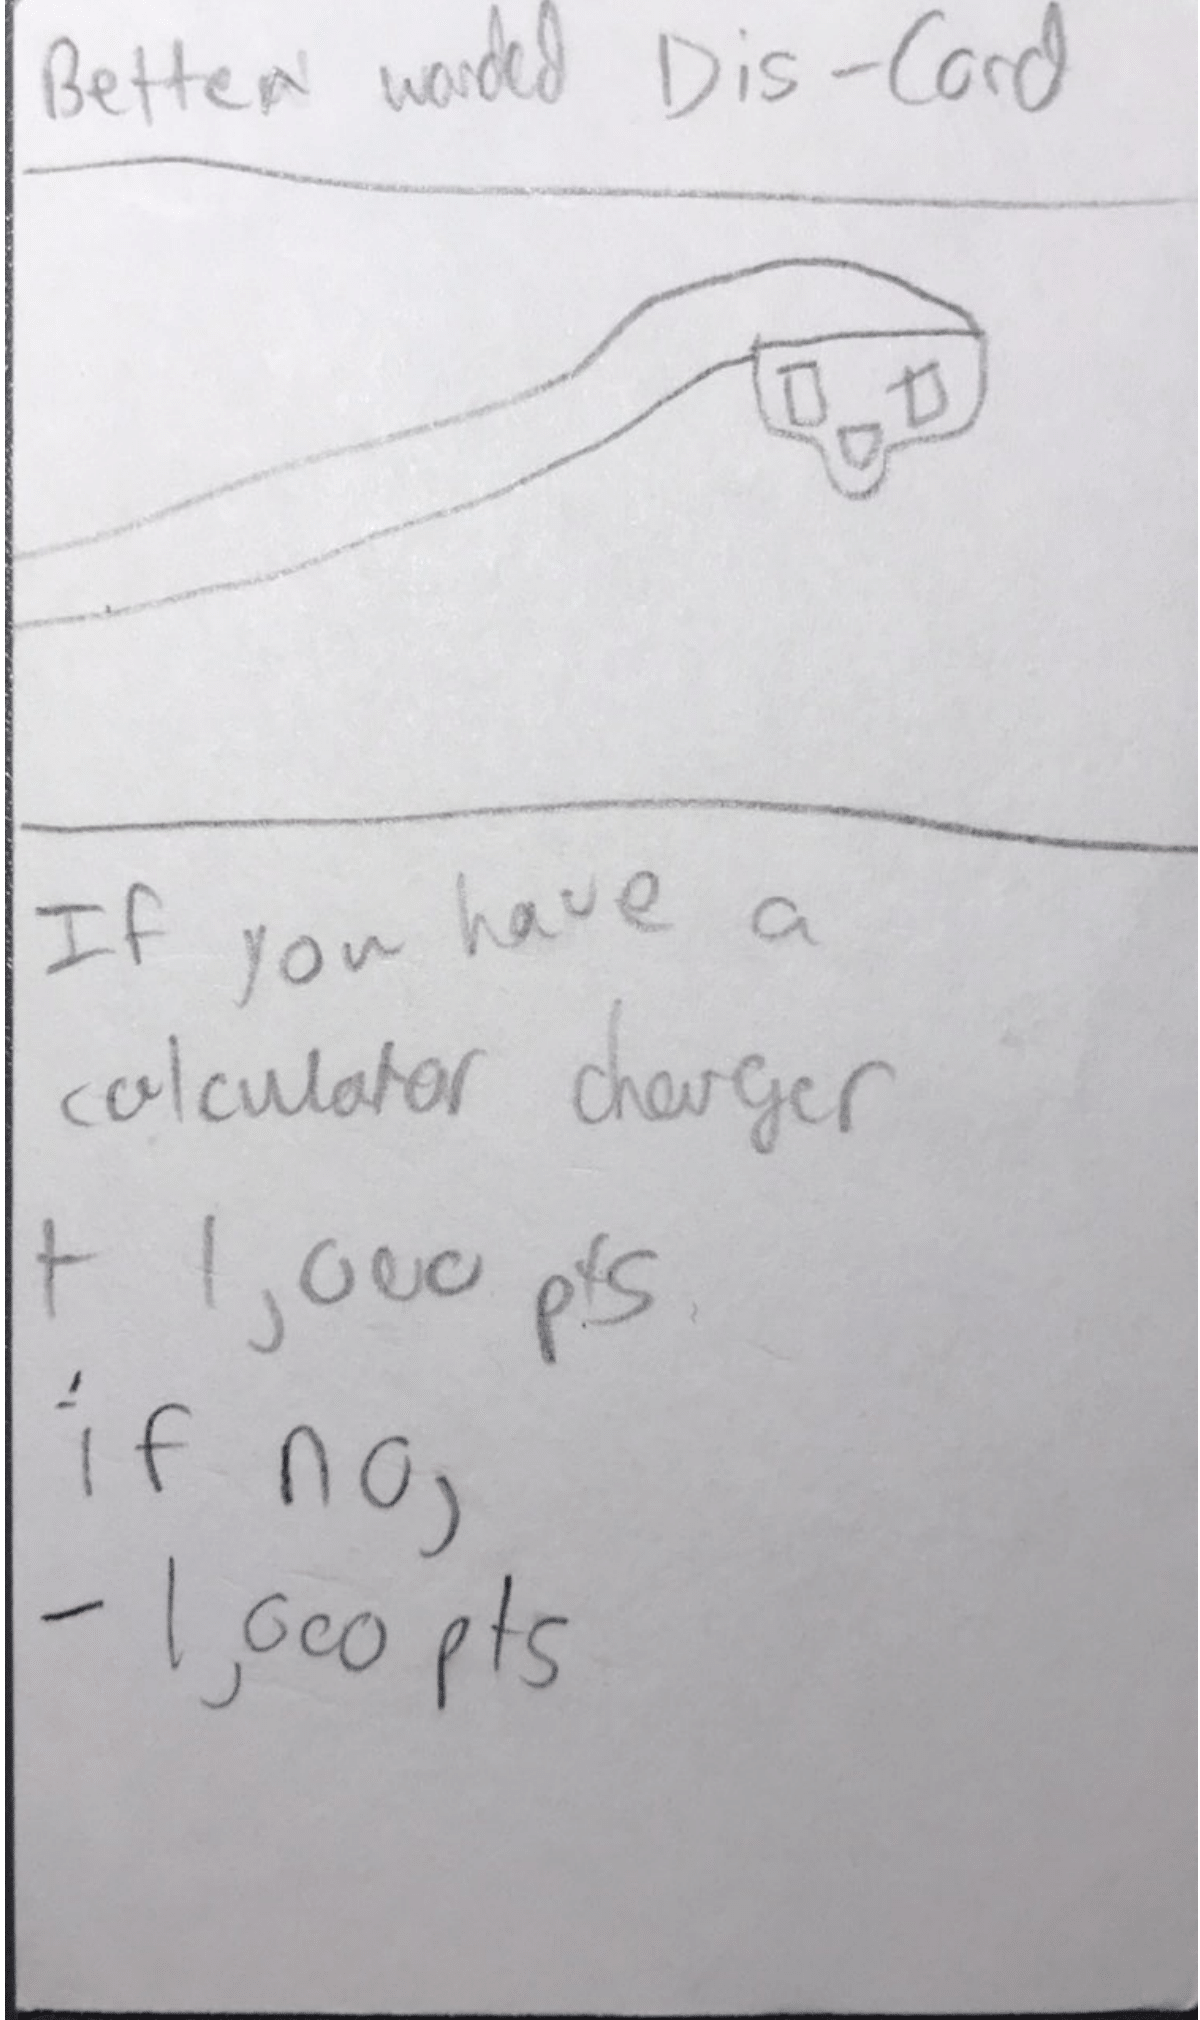 Better worded Dis-Card
If you have a
calculator charger
+ 1,000 pts.
if no,
- 1,000 pts